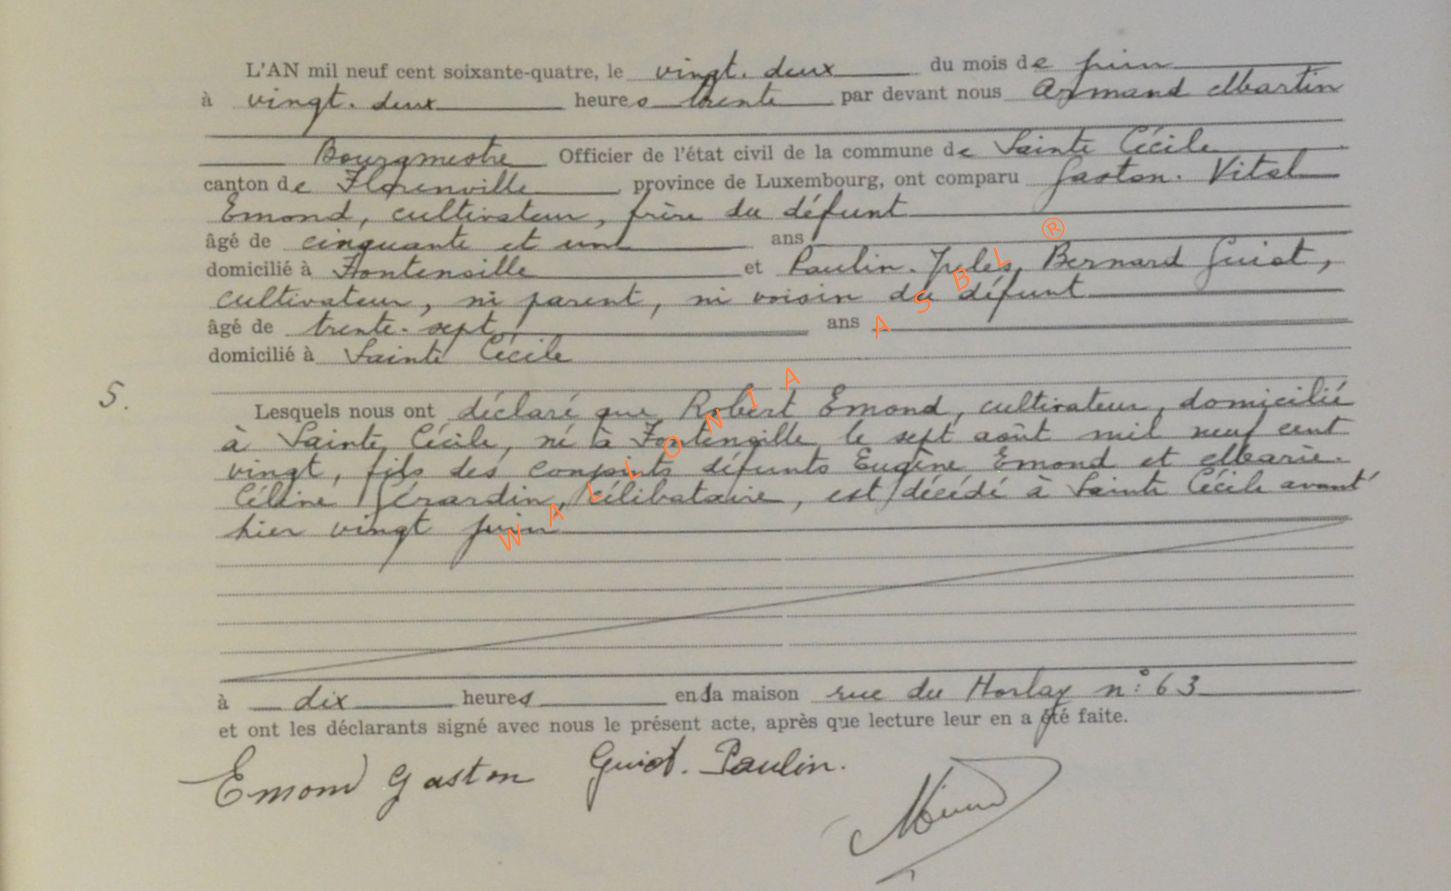 L'AN mil neuf cent soixante-quatre, le vingt. deux du mois de juin
à vingt. deux heures trente par devant nous Armand Martin
Bourgmestre Officier de l'état civil de la commune de Sainte Cécile
canton de Florenville, province de Luxembourg, ont comparu Gaston. Vital
Emond, cultivateur, frère du défunt
âgé de cinquante et un ans
domicilié à Fontenoille et Paulin. Jules, Bernard Guiot,
cultivateur, ni parent, ni voisin du défunt
âgé de trente-sept ans
domicilié à Sainte Cécile
5.
Lesquels nous ont déclaré que Robert Emond, cultivateur, domicilié
à Sainte Cécile, né à Fontenoille le sept août mil neuf cent
vingt, fils des conjoints défunts Eugène Emond et Marie-
Céline Gérardin, célibataire, est décédé à Sainte Cécile avant
hier vingt juin
à dix heures en la maison rue du Horlay n° 63
et ont les déclarants signé avec nous le présent acte, après que lecture leur en a été faite.
Emond Gaston Guiot. Paulin.
WALLONIA ASBL ®